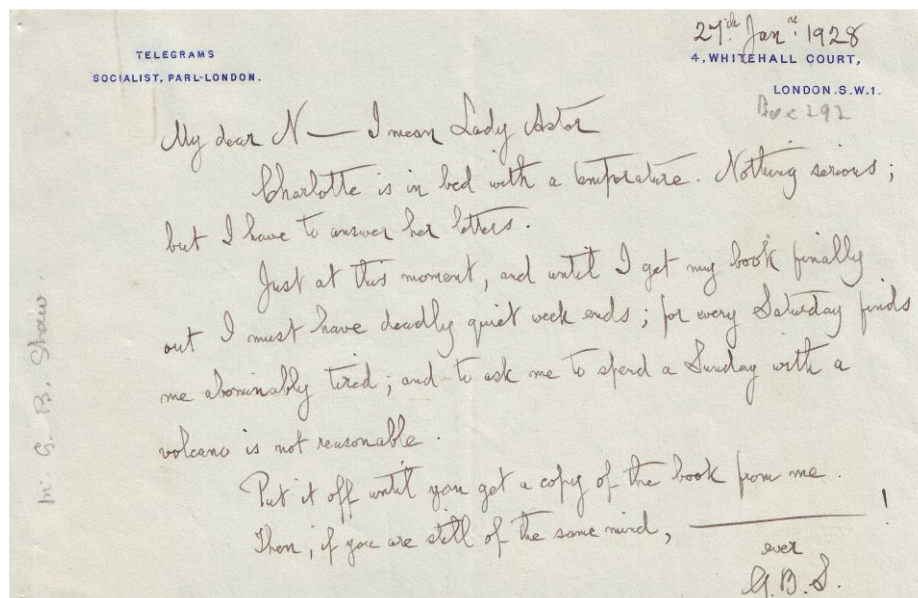 27th. Janry. 1928
TELEGRAMS
SOCIALIST, PARL-LONDON.
4, WHITEHALL COURT,
LONDON. S.W.1.
Box 292
My dear N— I mean Lady Astor
Charlotte is in bed with a temperature. Nothing serious;
but I have to answer her letters.
Just at this moment, and until I get my book finally
out I must have deadly quiet week ends; for every Saturday finds
me abominably tired; and to ask me to spend a Sunday with a
volcano is not reasonable.
Put it off until you get a copy of the book from me.
Then, if you are still of the same mind, ———!
ever
G.B.S.
G. B. Shaw